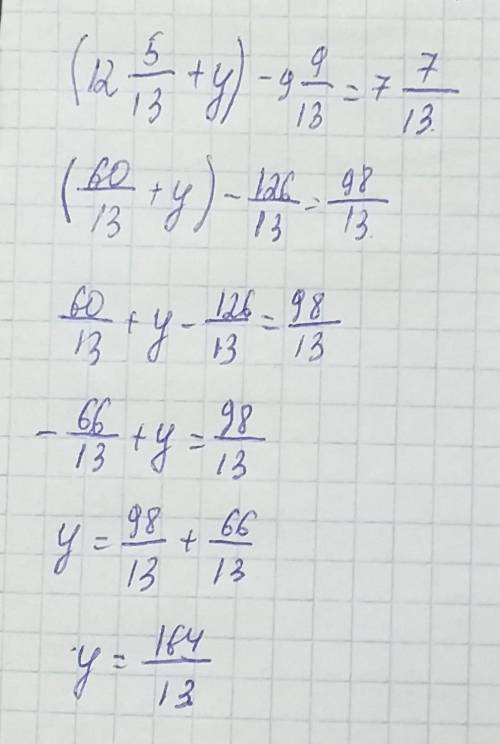 (12 5/13 + y) - 9 9/13 = 7 7/13
(60/13 + y) - 126/13 = 98/13
60/13 + y - 126/13 = 98/13
- 66/13 + y = 98/13
y = 98/13 + 66/13
y = 164/13